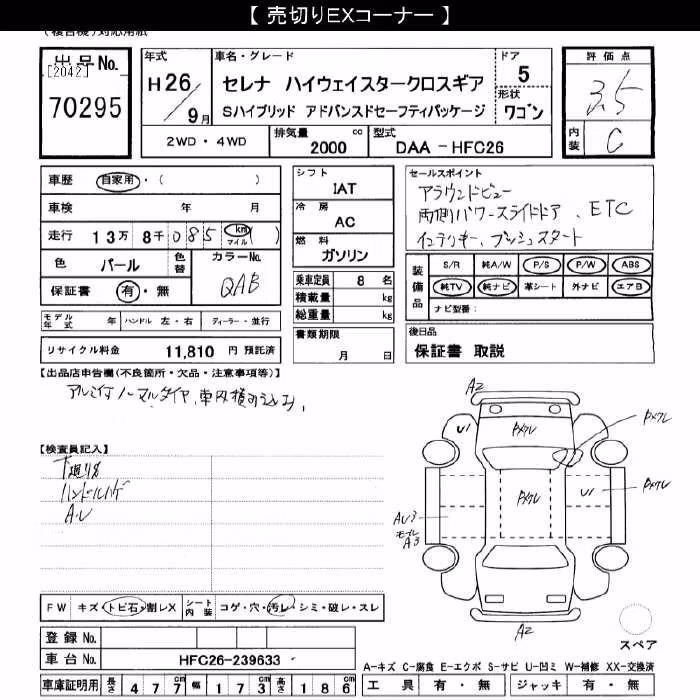 【 売切りEXコーナー 】
出品No.
[2042]
70295
年式
H26/9月
車名・グレード
セレナ ハイウェイスタークロスギア
Sハイブリッド アドバンスドセーフティパッケージ
ドア
5
形状
ワゴン
評価点
3.5
内装
C
2WD・4WD
排気量
2000 cc
型式
DAA-HFC26
車歴 自家用・( )
車検 年 月
走行 13万 8千 085 km マイル ( )
色 パール
色替
カラーNo.
QAB
保証書 有・無
シフト
IAT
冷房
AC
燃料
ガソリン
乗車定員 8 名
積載量 kg
総重量 kg
書類期限
月 日
セールスポイント
アラウンドビュー
両側パワースライドドア、ETC
インテリキー、プッシュスタート
装備品
S/R 純A/W P/S P/W ABS
純TV 純ナビ 革シート 外ナビ エアB
ナビ型番:
モデル年式 年 ハンドル 左・右 ディーラー・並行
リサイクル料金 11,810 円 預託済
後日品
保証書 取説
【出品店申告欄(不良箇所・欠品・注意事項等)】
【検査員記入】
ハンドルハゲ
A.U
A2
U1
PXクレ
PXクレ
PXクレ
PXクレ
U1
AU3
モール
A3
A2
スペア
FW キズ・トビ石・割レX
シート内装 コゲ・穴・汚レ・シミ・破レ・スレ
登録No.
車台No. HFC26-239633
A-キズ C-腐食 E-エクボ S-サビ U-凹ミ W-補修 XX-交換済
車庫証明用 長さ 477cm 幅 173cm 高さ 186cm
工具 有・無 ジャッキ 有・無